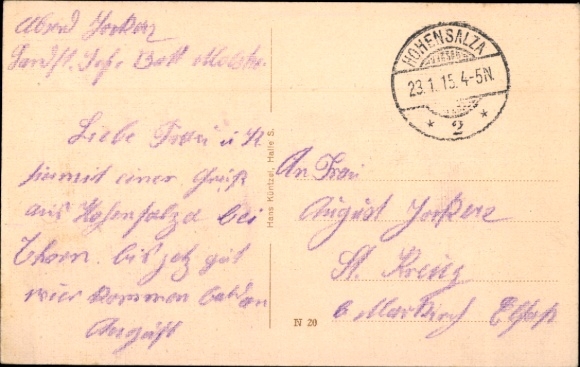 Absend Jorkerz
Landst. Inf. Batt Molsh.
Liebe Frau u K
nimmt einen Gruß
aus Hohensalza bei
Thorn. bis jetz gut
wier kommen bald an
August
Hans Küntzel, Halle S.
HOHENSALZA
23.1.15. 4-5N.
* 2 *
An Frau
August
St. Kreuz
b Markirch Elsaß
N 20